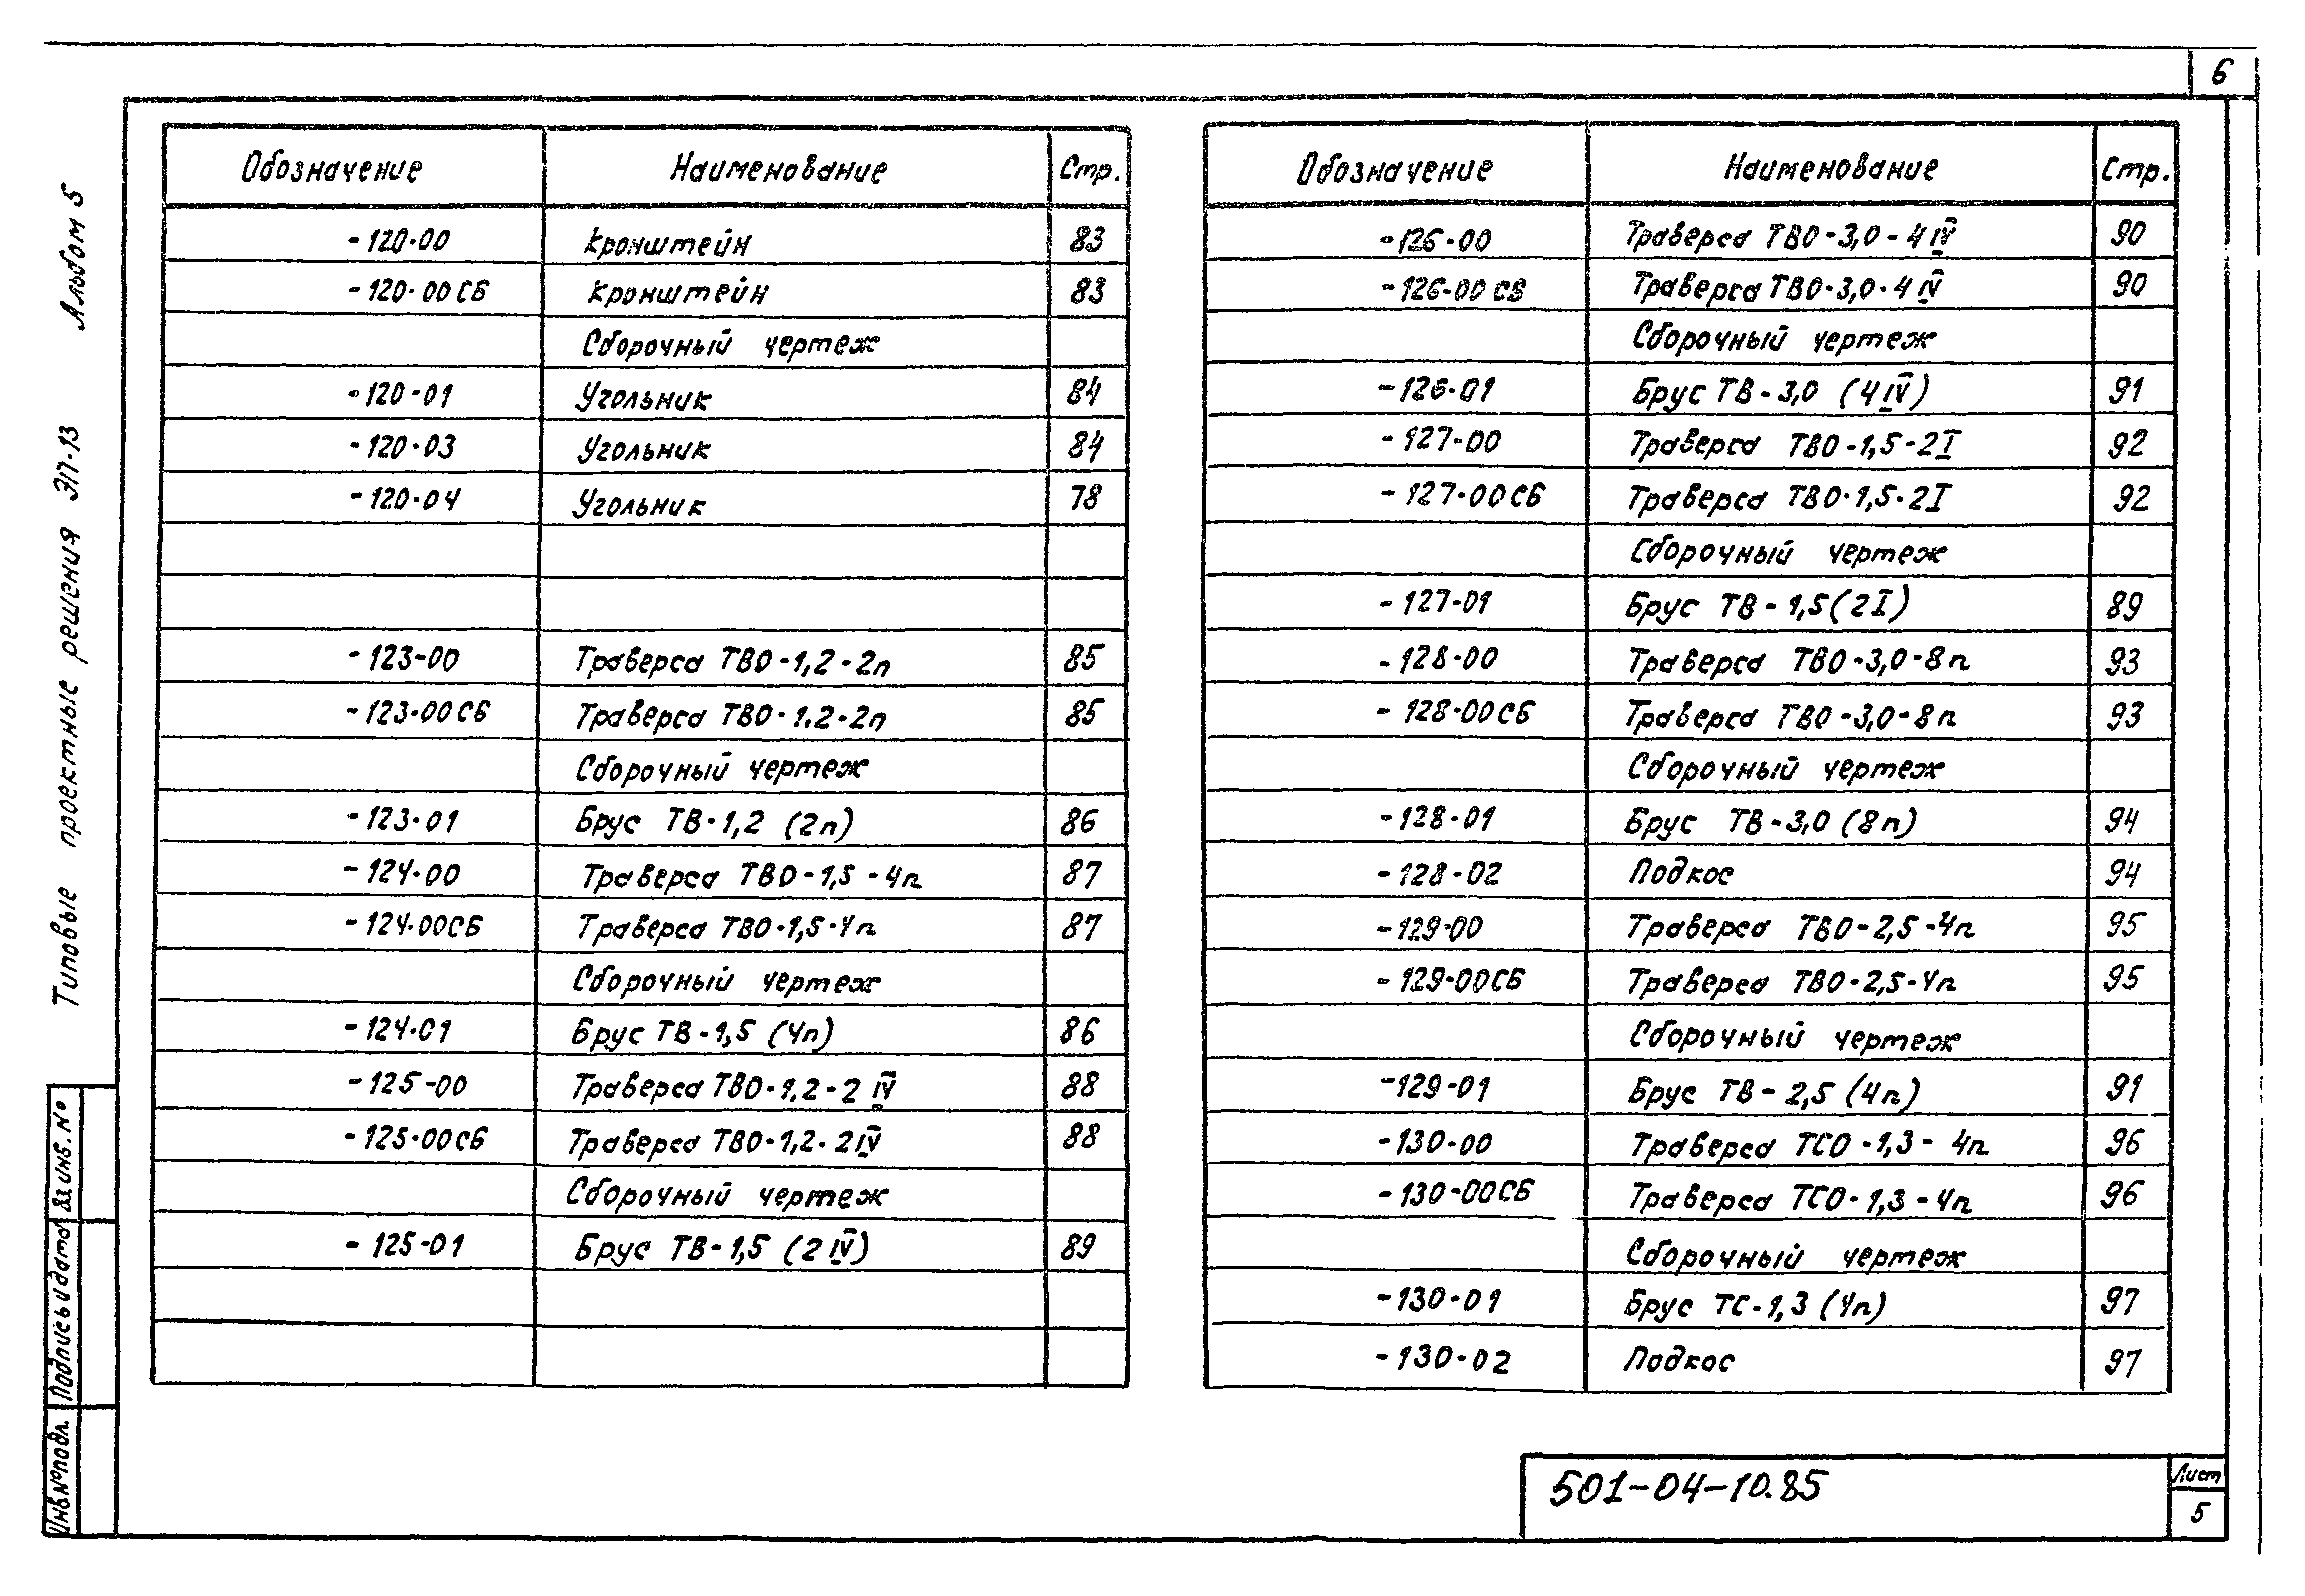 6
Альбом 5
Типовые проектные решения ЭП-13
Обозначение Наименование Стр.
-120-00 Кронштейн 83
-120-00СБ Кронштейн 83
Сборочный чертеж
-120-01 Угольник 84
-120-03 Угольник 84
-120-04 Угольник 78
-123-00 Траверса ТВО-1,2-2п 85
-123-00СБ Траверса ТВО-1,2-2п 85
Сборочный чертеж
-123-01 Брус ТВ-1,2 (2п) 86
-124-00 Траверса ТВО-1,5-4п 87
-124-00СБ Траверса ТВО-1,5-4п 87
Сборочный чертеж
-124-01 Брус ТВ-1,5 (4п) 86
-125-00 Траверса ТВО-1,2-2 IV 88
-125-00СБ Траверса ТВО-1,2-2 IV 88
Сборочный чертеж
-125-01 Брус ТВ-1,5 (2 IV) 89
Обозначение Наименование Стр.
-126-00 Траверса ТВО-3,0-4 IV 90
-126-00 СБ Траверса ТВО-3,0-4 IV 90
Сборочный чертеж
-126-01 Брус ТВ-3,0 (4 IV) 91
-127-00 Траверса ТВО-1,5-2I 92
-127-00СБ Траверса ТВО-1,5-2I 92
Сборочный чертеж
-127-01 Брус ТВ-1,5(2I) 89
-128-00 Траверса ТВО-3,0-8п 93
-128-00СБ Траверса ТВО-3,0-8п 93
Сборочный чертеж
-128-01 Брус ТВ-3,0 (8п) 94
-128-02 Подкос 94
-129-00 Траверса ТВО-2,5-4п 95
-129-00СБ Траверса ТВО-2,5-4п 95
Сборочный чертеж
-129-01 Брус ТВ-2,5 (4п) 91
-130-00 Траверса ТСО-1,3-4п 96
-130-00СБ Траверса ТСО-1,3-4п 96
Сборочный чертеж
-130-01 Брус ТС-1,3 (4п) 97
-130-02 Подкос 97
Вз инв. №
Подпись и дата
Инв № подл.
501-04-10.85
Лист
5